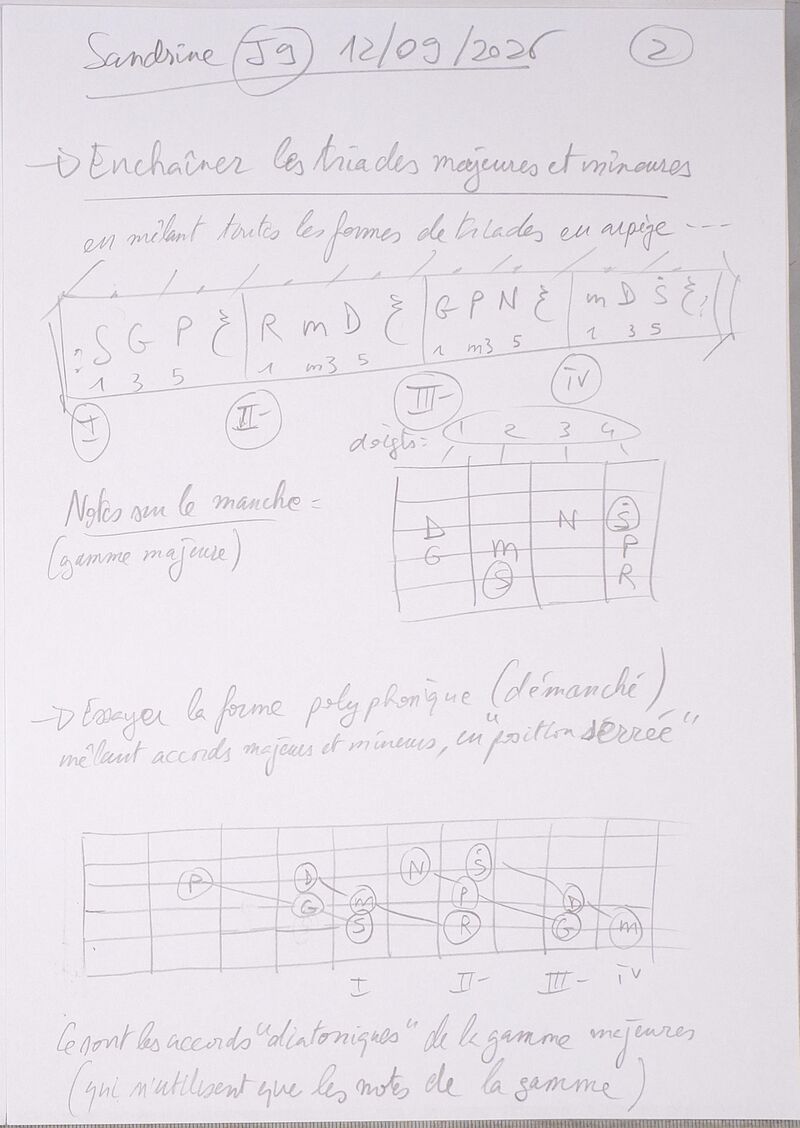 Sandrine J9 12/09/2026 2
→ Enchaîner les triades majeures et mineures
en mêlant toutes les formes de triades en arpège ---
S G P | R m D | G P N | m D Ṡ
1 3 5 1 m3 5 1 m3 5 1 3 5
I II- III- IV
doigts: 1 2 3 4
Notes sur le manche =
(gamme majeure)
D N Ṡ
G m P
S R
→ Essayer la forme polyphonique (démanché)
mêlant accords majeurs et mineurs, en "position serrée"
N Ṡ
P D P D
G m R G m
S
I II- III- IV
Ce sont les accords "diatoniques" de la gamme majeures
(qui n'utilisent que les notes de la gamme)